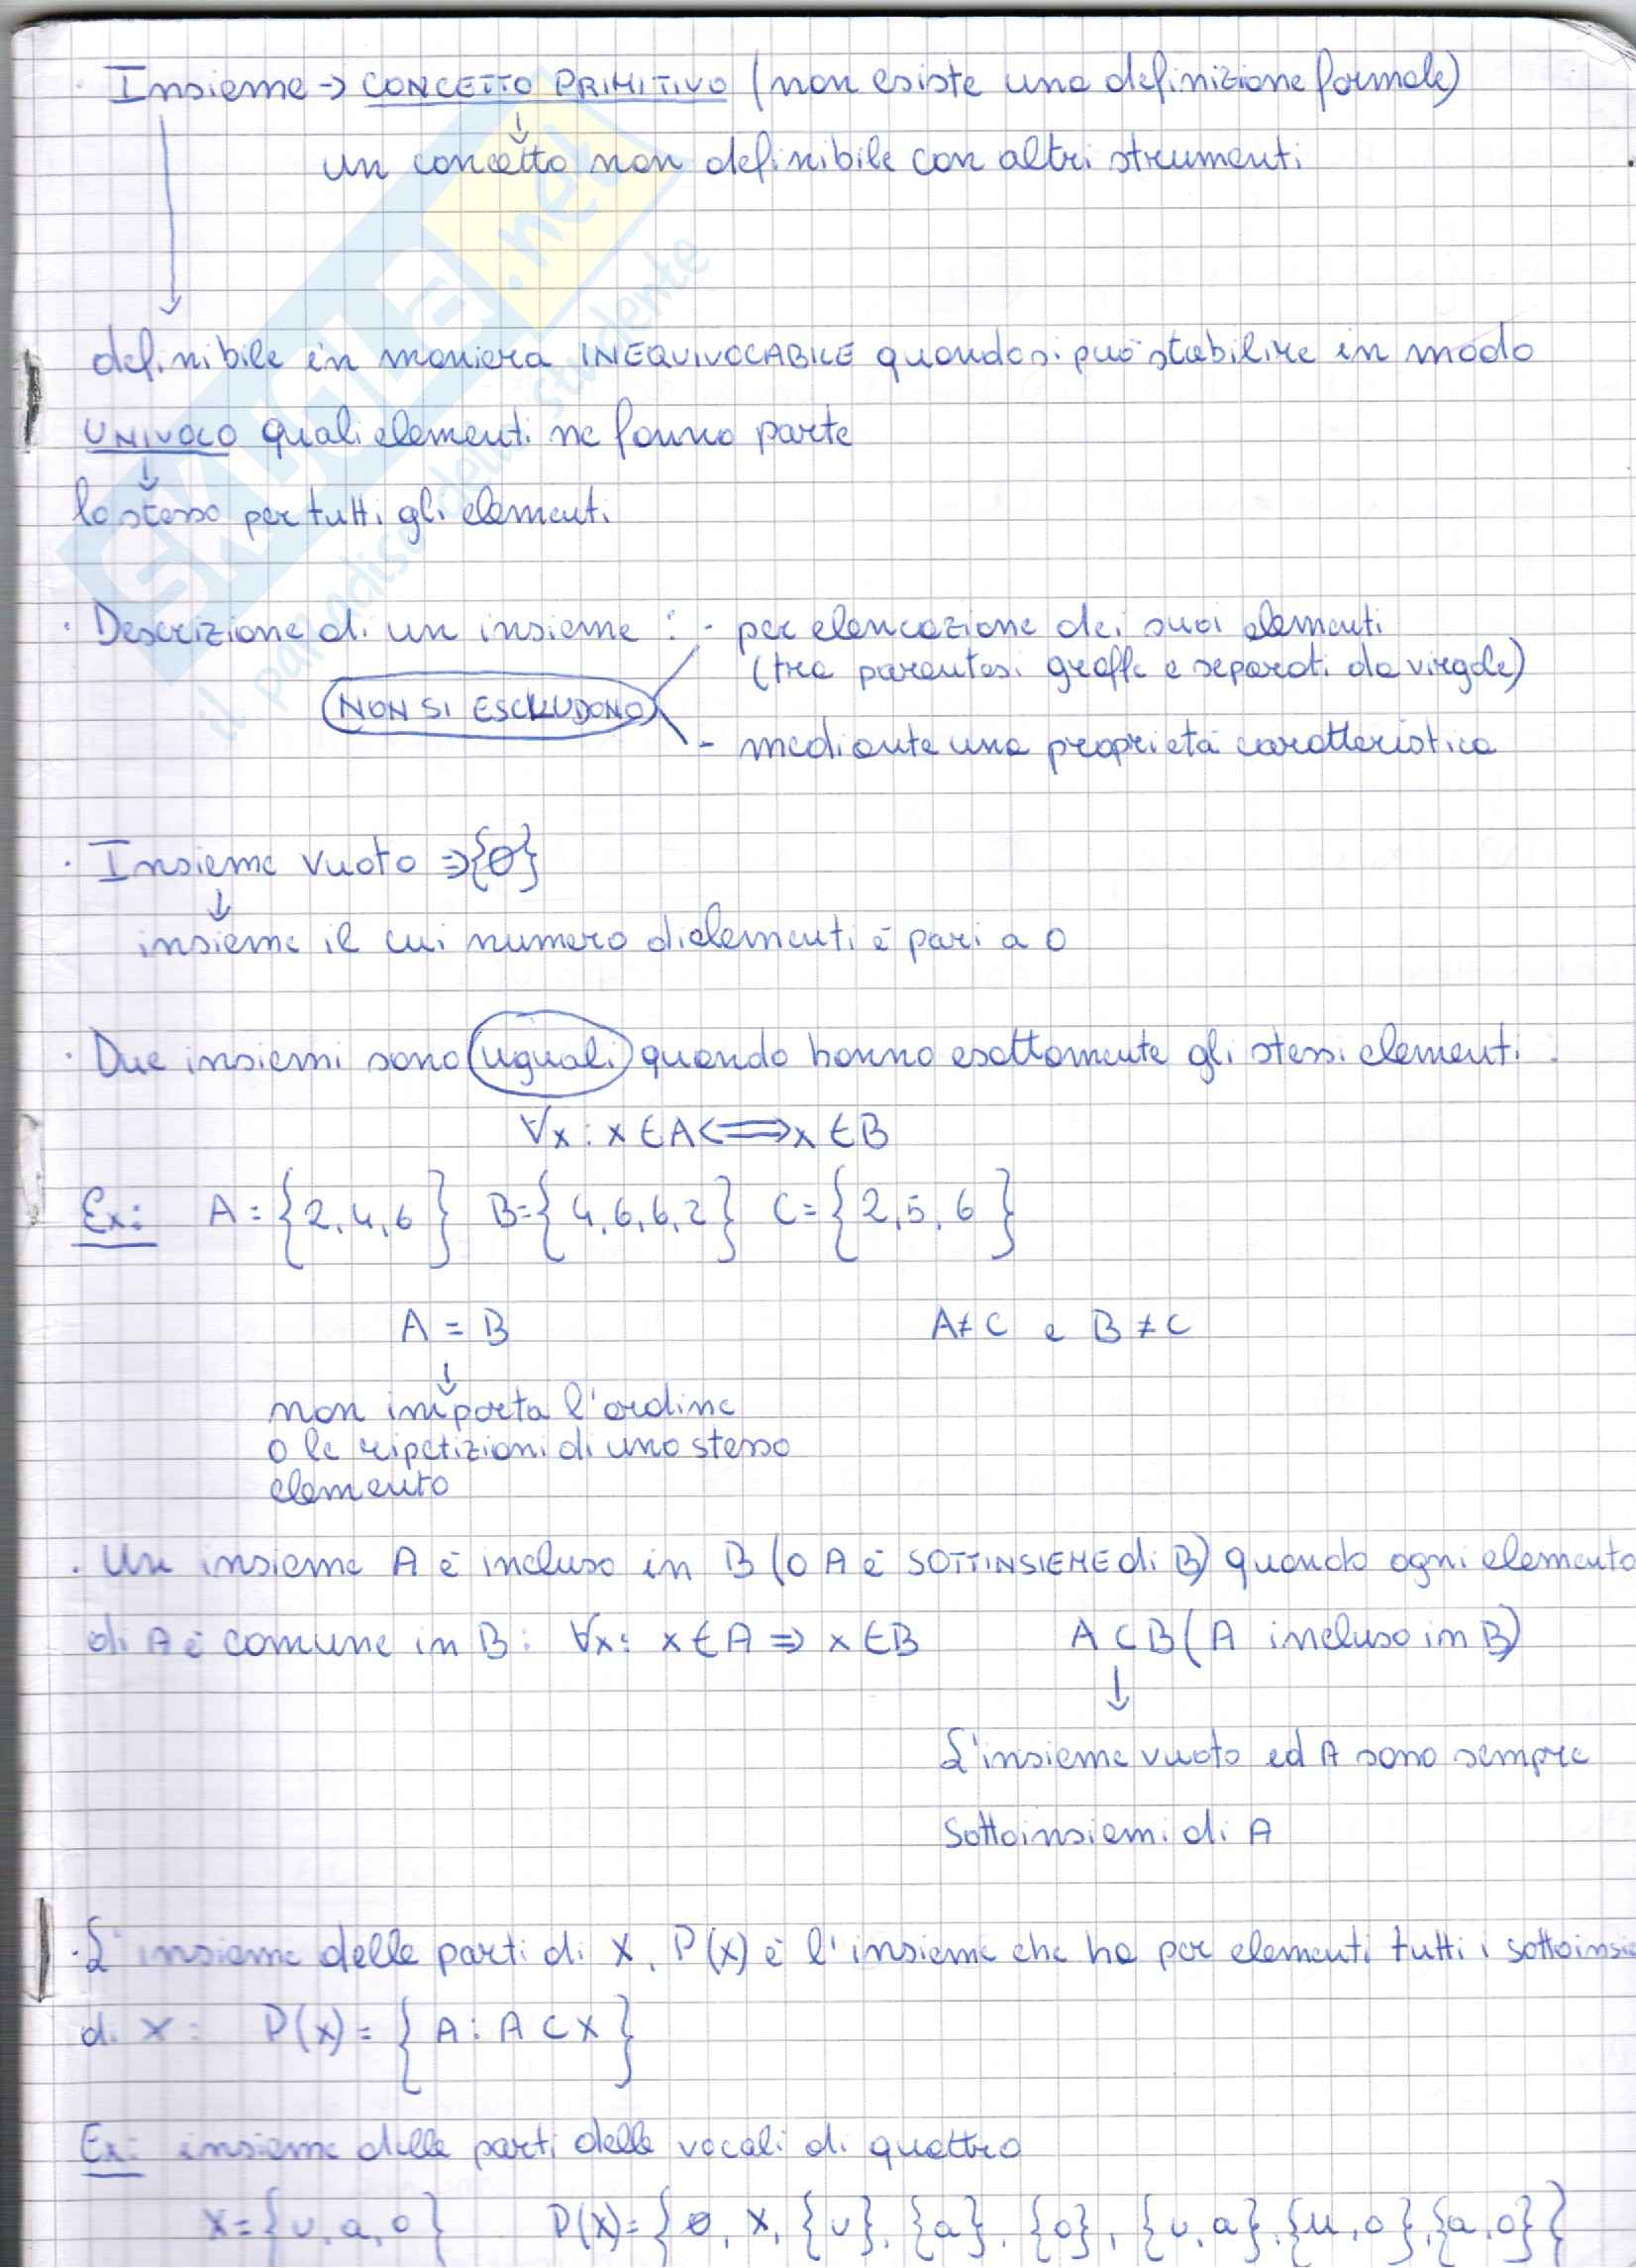 Insieme → CONCETTO PRIMITIVO (non esiste una definizione formale)
↓
un concetto non definibile con altri strumenti
definibile in maniera INEQUIVOCABILE quando si può stabilire in modo
UNIVOCO quali elementi ne fanno parte
↓
lo stesso per tutti gli elementi
· Descrizione di un insieme : - per elencazione dei suoi elementi
(tra parentesi graffe e separati da virgole)
NON SI ESCLUDONO
- mediante una proprietà caratteristica
· Insieme vuoto ⇒ {∅}
↓
insieme il cui numero di elementi è pari a 0
· Due insiemi sono uguali quando hanno esattamente gli stessi elementi :
∀x : x ∈ A ⟺ x ∈ B
Ex: A = {2, 4, 6} B = {4, 6, 6, 2} C = {2, 5, 6}
A = B A ≠ C e B ≠ C
↓
non importa l'ordine
o le ripetizioni di uno stesso
elemento
· Un insieme A è incluso in B (o A è SOTTINSIEME di B) quando ogni elemento
di A è comune in B : ∀x : x ∈ A ⇒ x ∈ B A ⊂ B (A incluso in B)
↓
L'insieme vuoto ed A sono sempre
sottoinsiemi di A
· L'insieme delle parti di X, P(x) è l'insieme che ha per elementi tutti i sottoinsie
di X : P(x) = {A : A ⊂ X}
Ex: insieme delle parti delle vocali di quattro
X = {u, a, o} P(X) = {∅, X, {u}, {a}, {o}, {u, a}, {u, o}, {a, o}}
SKUOLA.net
il paradiso dello studente